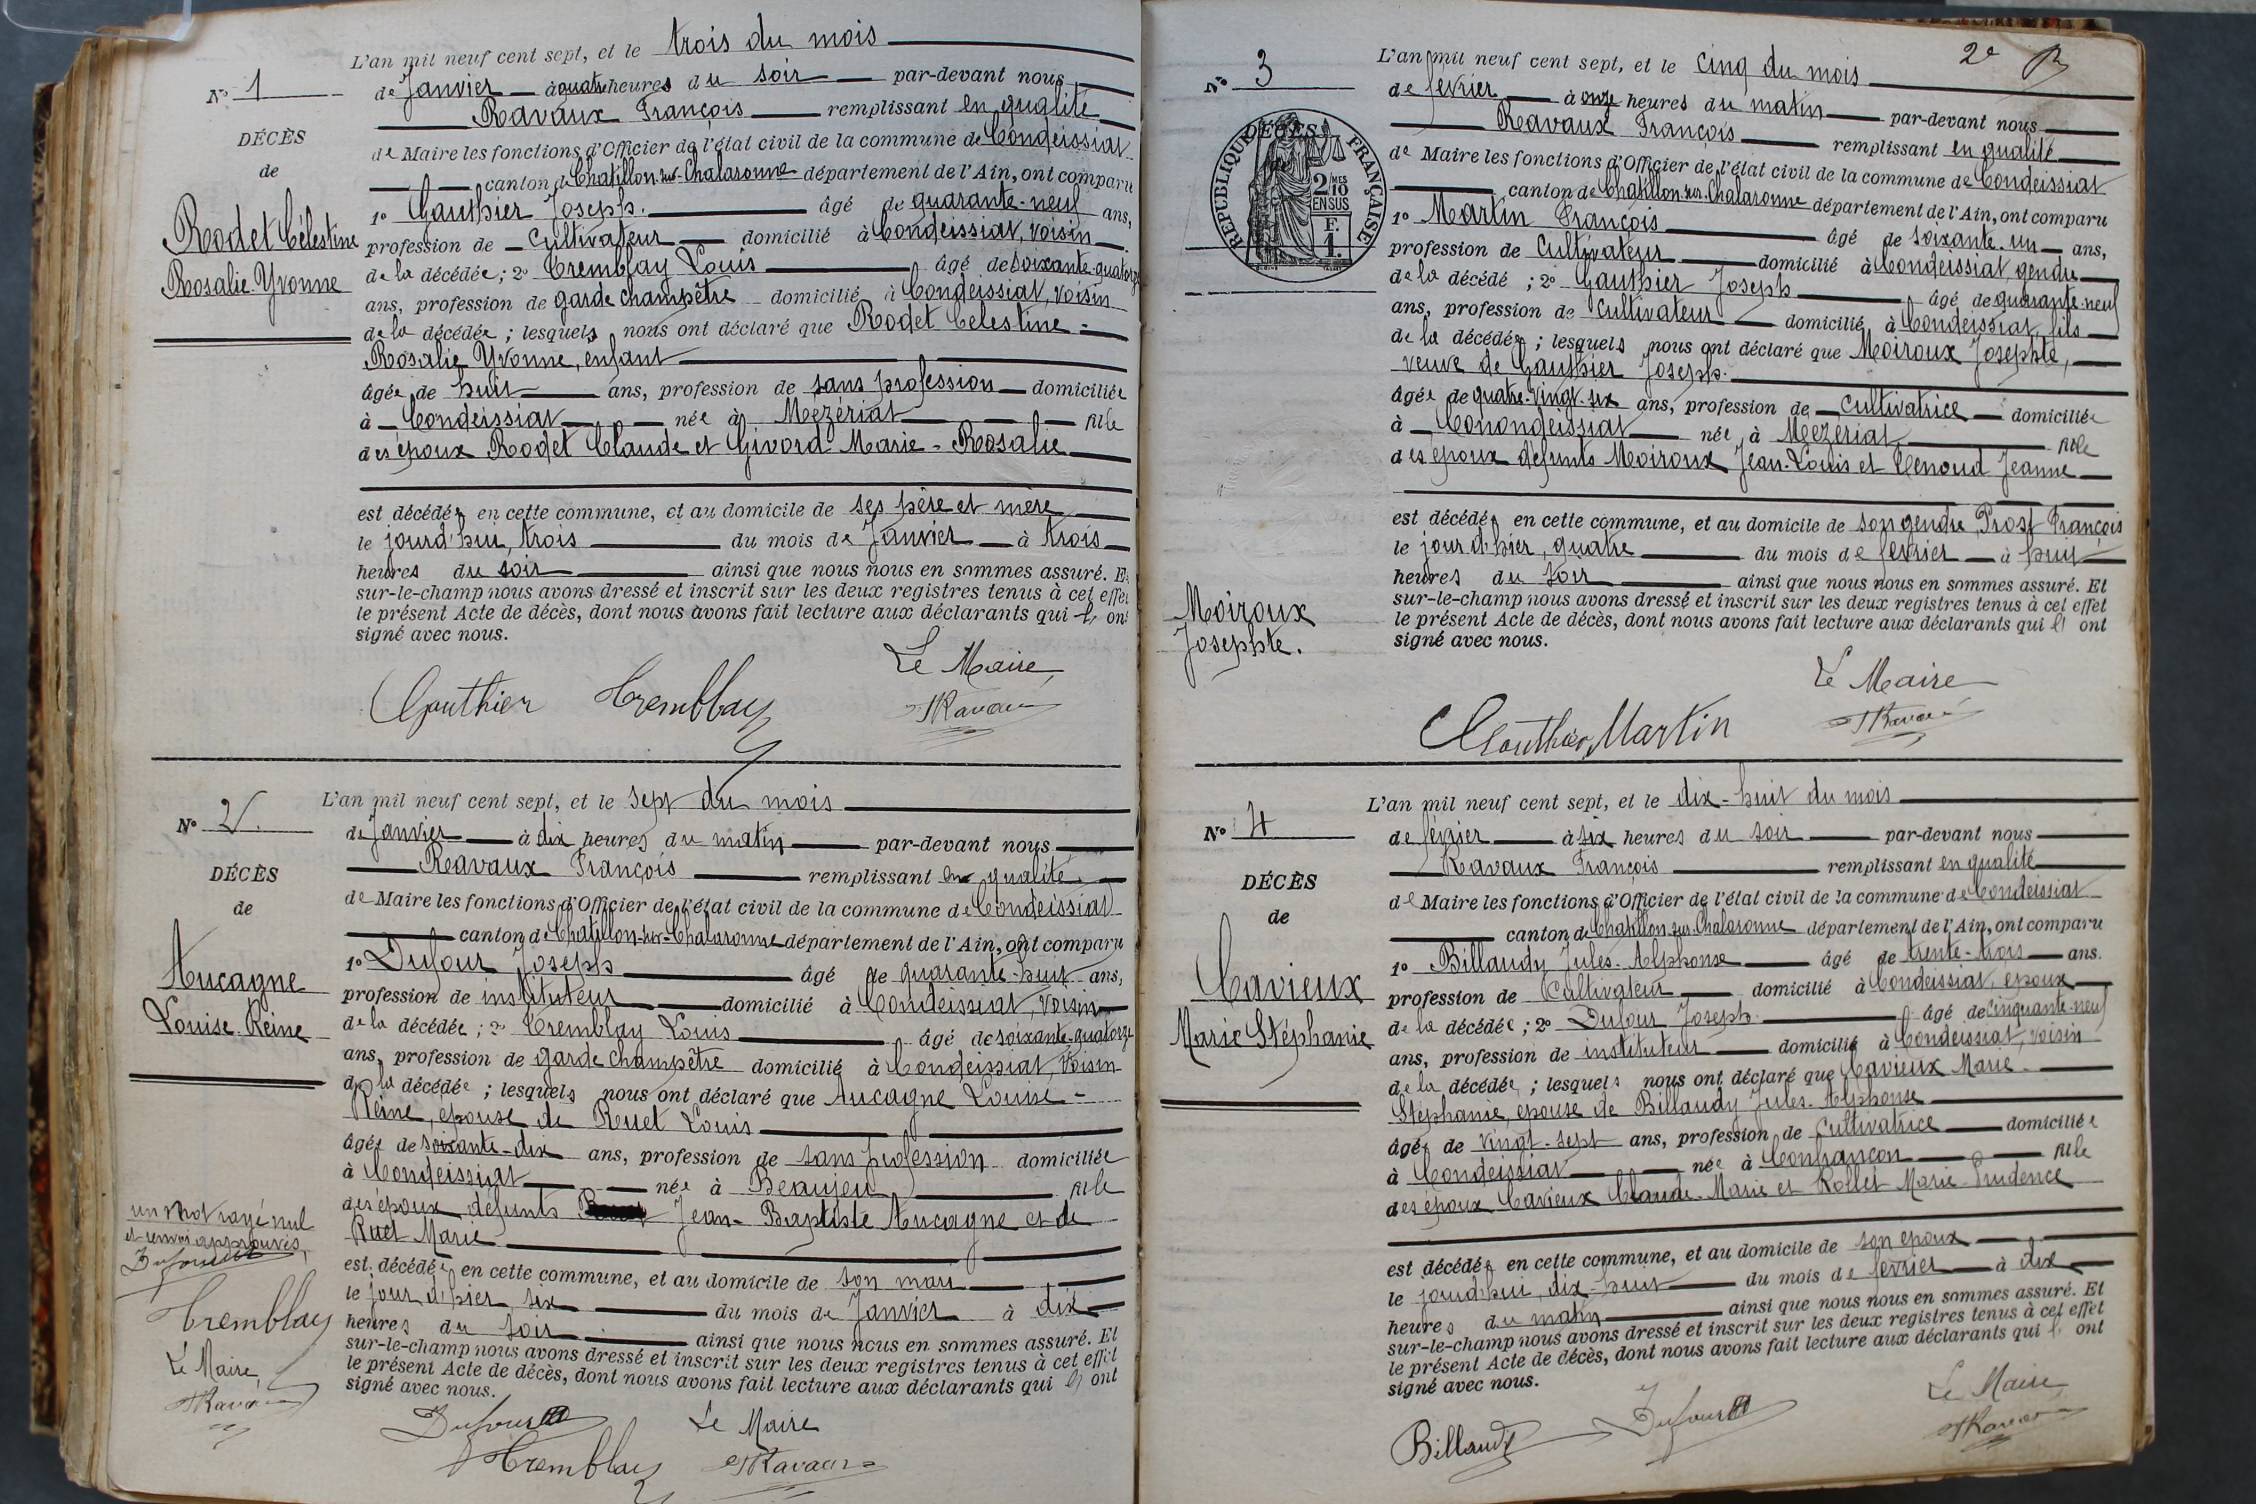 L'an mil neuf cent sept, et le trois du mois
N° 1
de Janvier à quatre heures du soir par-devant nous
Ravaux François remplissant en qualité
DÉCÈS
de Maire les fonctions d'Officier de l'état civil de la commune de Condeissiat
de
canton de Chatillon-sur-Chalaronne département de l'Ain, ont comparu
1° Gauthier Joseph. âgé de quarante-neuf ans,
Rodet Célestine
profession de Cultivateur domicilié à Condeissiat, voisin
Rosalie-Yvonne
de la décédée; 2° Tremblay Louis âgé de soixante-quatorze
ans, profession de garde champêtre domicilié à Condeissiat, voisin
de la décédée; lesquels nous ont déclaré que Rodet Célestine-
Rosalie Yvonne, enfant
âgée de huit ans, profession de sans profession domiciliée
à Condeissiat née à Mézériat fille
des époux Rodet Claude et Givord Marie-Rosalie
est décédée en cette commune, et au domicile de ses père et mère
le jourd'hui, trois du mois de Janvier à trois
heures du soir ainsi que nous nous en sommes assuré. Et
sur-le-champ nous avons dressé et inscrit sur les deux registres tenus à cet effet
le présent Acte de décès, dont nous avons fait lecture aux déclarants qui ont
signé avec nous.
Le Maire,
Gauthier Tremblay Ravaux
L'an mil neuf cent sept, et le sept du mois
N° 2
de Janvier à dix heures du matin par-devant nous
Ravaux François remplissant en qualité
DÉCÈS
de Maire les fonctions d'Officier de l'état civil de la commune de Condeissiat
de
canton de Chatillon-sur-Chalaronne département de l'Ain, ont comparu
1° Dufour Joseph âgé de quarante-huit ans,
Aucagne
profession de instituteur domicilié à Condeissiat, voisin
Louise-Reine
de la décédée; 2° Tremblay Louis âgé de soixante-quatorze
ans, profession de garde champêtre domicilié à Condeissiat, voisin
de la décédée; lesquels nous ont déclaré que Aucagne Louise-
Reine, épouse de Ruet Louis
âgée de soixante-dix ans, profession de sans profession domiciliée
à Condeissiat née à Beaujeu fille
des époux défunts Jean-Baptiste Aucagne et de
Ruet Marie
un mot rayé nul
et renvoi approuvés,
Dufour
Tremblay
Le Maire,
Ravaux
est décédée en cette commune, et au domicile de son mari
le jour d'hier, six du mois de Janvier à dix
heures du soir ainsi que nous nous en sommes assuré. Et
sur-le-champ nous avons dressé et inscrit sur les deux registres tenus à cet effet
le présent Acte de décès, dont nous avons fait lecture aux déclarants qui ont
signé avec nous.
Dufour Le Maire
Tremblay Ravaux
2e
L'an mil neuf cent sept, et le cinq du mois
N° 3
de février à onze heures du matin par-devant nous
Ravaux François remplissant en qualité
DÉCÈS
RÉPUBLIQUE FRANÇAISE
2/10 MES
EN SUS
F.
1.
de Maire les fonctions d'Officier de l'état civil de la commune de Condeissiat
canton de Chatillon-sur-Chalaronne département de l'Ain, ont comparu
1° Martin François âgé de soixante-un ans,
profession de cultivateur domicilié à Condeissiat, gendre
de la décédé; 2° Gauthier Joseph âgé de quarante-neuf
ans, profession de cultivateur domicilié à Condeissiat, fils
de la décédée; lesquels nous ont déclaré que Moiroux Josephte,
veuve de Gauthier Joseph.
âgée de quatre-vingt-six ans, profession de cultivatrice domiciliée
à Conondeissiat née à Mezeriat fille
des époux défunts Moiroux Jean-Louis et Genoud Jeanne
est décédée en cette commune, et au domicile de son gendre Prost François
le jour d'hier, quatre du mois de février à huit
heures du soir ainsi que nous nous en sommes assuré. Et
sur-le-champ nous avons dressé et inscrit sur les deux registres tenus à cet effet
le présent Acte de décès, dont nous avons fait lecture aux déclarants qui ont
signé avec nous.
Moiroux
Josephte.
Le Maire
Gauthier Martin Ravaux
L'an mil neuf cent sept, et le dix-huit du mois
N° 4
de février à six heures du soir par-devant nous
Ravaux François remplissant en qualité
DÉCÈS
de Maire les fonctions d'Officier de l'état civil de la commune de Condeissiat
de
canton de Chatillon-sur-Chalaronne département de l'Ain, ont comparu
1° Billaudy Jules-Alphonse âgé de trente-trois ans.
Cavieux
profession de Cultivateur domicilié à Condeissiat, epoux
Marie Stéphanie
de la décédée; 2° Dufour Joseph âgé de cinquante-neuf
ans, profession de instituteur domicilié à Condeissiat, voisin
de la décédée; lesquels nous ont déclaré que Cavieux Marie-
Stéphanie, epouse de Billaudy Jules-Alphonse
âgée de vingt-sept ans, profession de Cultivatrice domiciliée
à Condeissiat née à Confrançon fille
des époux Cavieux Claude-Marie et Rollet Marie-Prudence
est décédée en cette commune, et au domicile de son epoux
le jourd'hui, dix-huit du mois de février à dix
heures du matin ainsi que nous nous en sommes assuré. Et
sur-le-champ nous avons dressé et inscrit sur les deux registres tenus à cet effet
le présent Acte de décès, dont nous avons fait lecture aux déclarants qui ont
signé avec nous.
Le Maire
Billaudy Dufour Ravaux